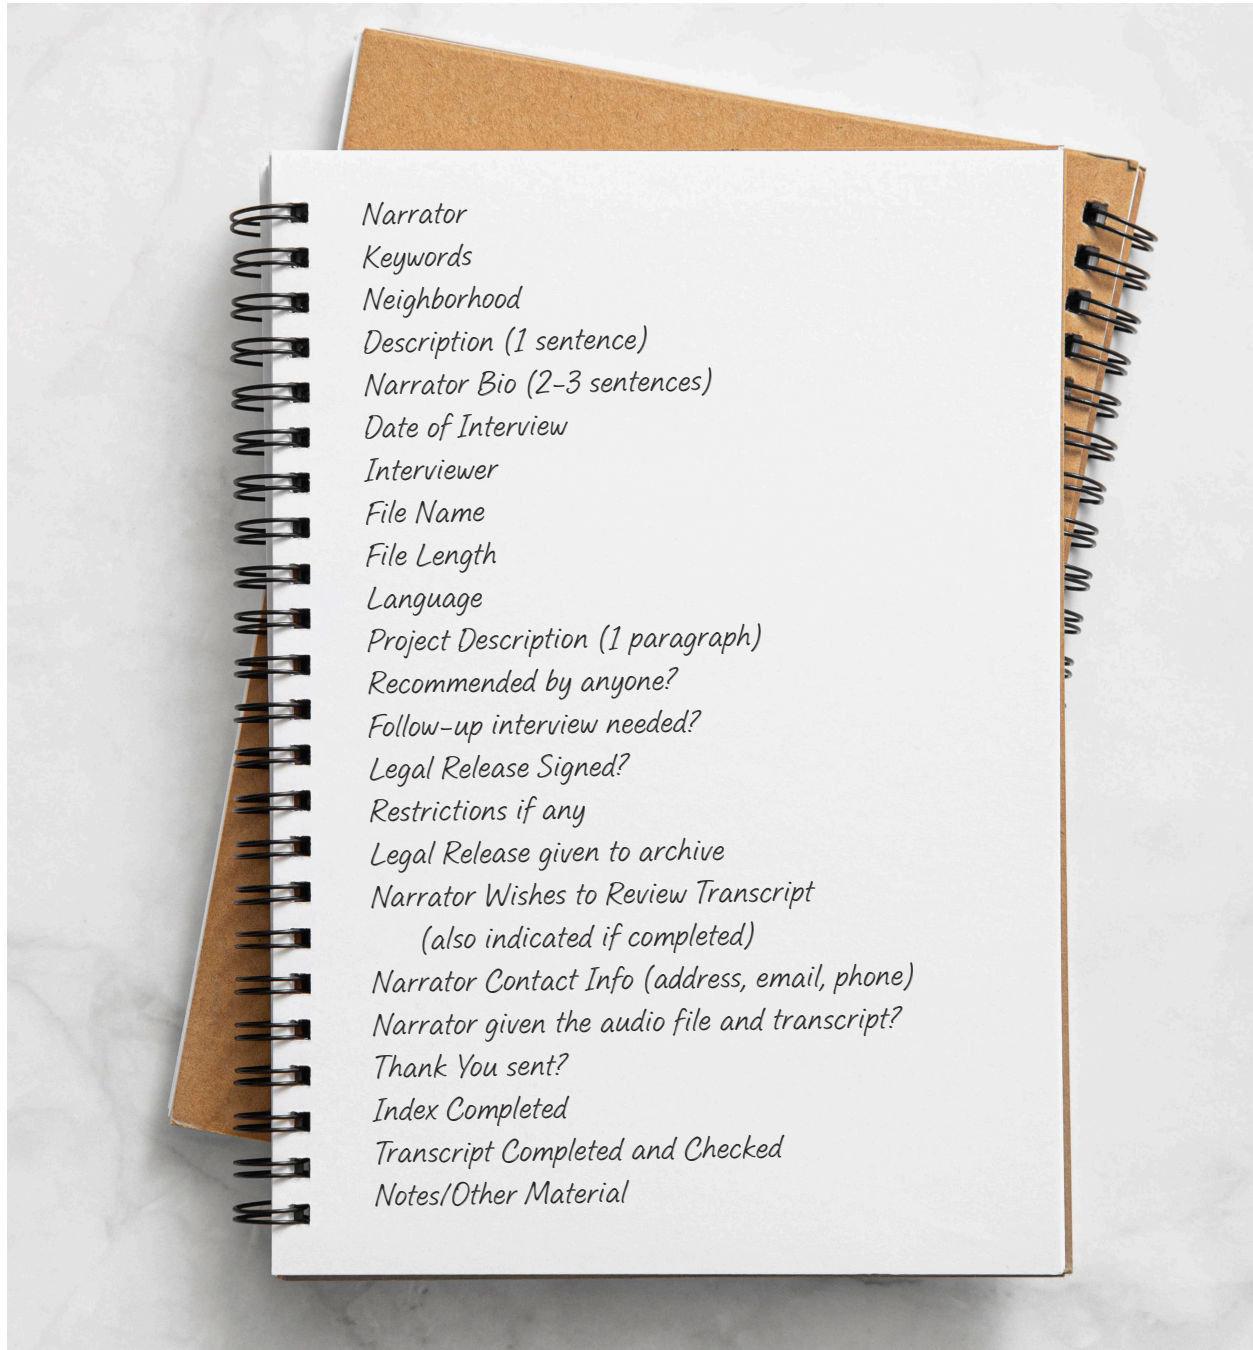 Narrator
Keywords
Neighborhood
Description (1 sentence)
Narrator Bio (2-3 sentences)
Date of Interview
Interviewer
File Name
File Length
Language
Project Description (1 paragraph)
Recommended by anyone?
Follow-up interview needed?
Legal Release Signed?
Restrictions if any
Legal Release given to archive
Narrator Wishes to Review Transcript
(also indicated if completed)
Narrator Contact Info (address, email, phone)
Narrator given the audio file and transcript?
Thank You sent?
Index Completed
Transcript Completed and Checked
Notes/Other Material